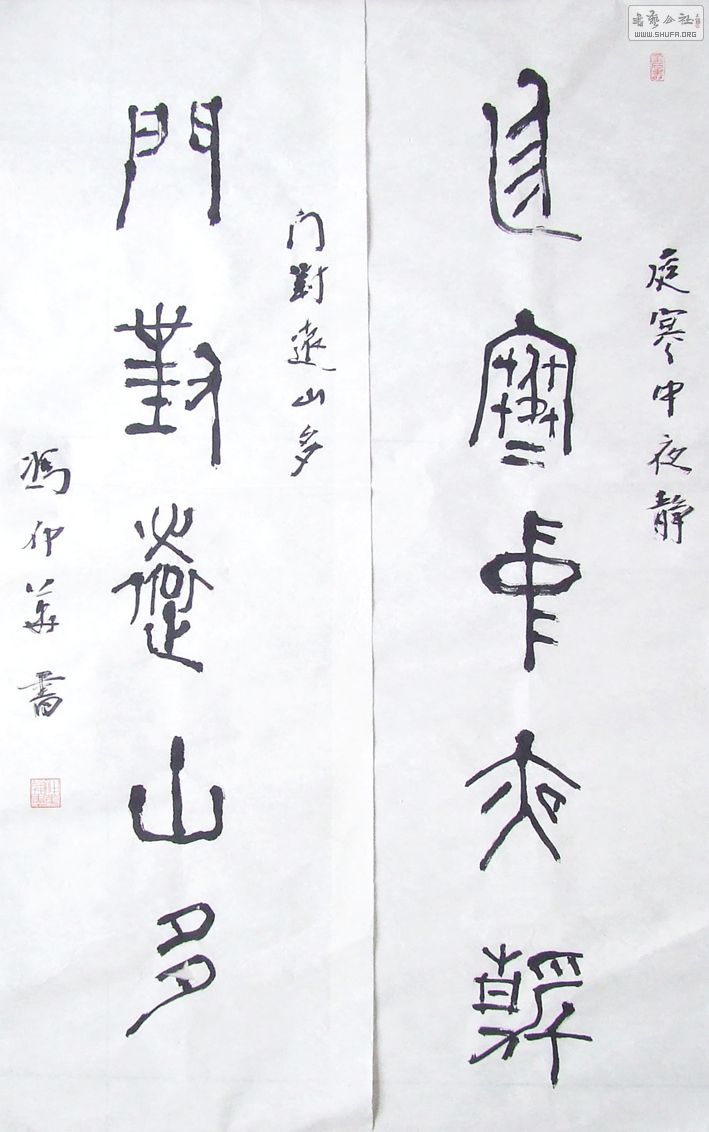 庭寒中夜靜
庭寒中夜靜
門對遠山多
门對遠山多
馮仲華書
书艺公社
WWW.SHUFA.ORG